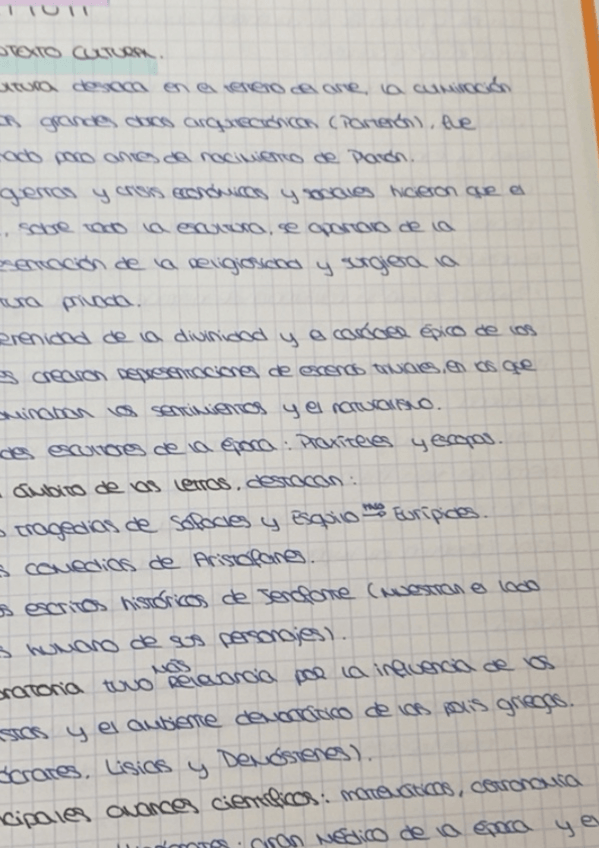 OTEXTO CULTURAL.
ltura destaca en el terreno del arte, la culminación
as grandes obras arquitectónicas (Partenón). Fue
ado poco antes del nacimiento de Platón.
guerras y crisis económicas y sociales hicieron que el
, sobre todo la escultura, se apartara de la
sentación de la religiosidad y surgiera la
tura privada.
erenidad de la divinidad y el carácter épico de los
s crearon representaciones de escenas triviales, en las que
minaban los sentimientos y el naturalismo.
des escultores de la época: Praxíteles y Escopas.
ámbito de las letras, destacan:
s tragedias de Sófocles y Esquilo → Eurípides.
s comedias de Aristófanes.
os escritos históricos de Jenofonte (muestran el lado
s humano de sus personajes).
oratoria tuvo más relevancia por la influencia de los
stas y el ambiente democrático de las polis griegas.
ócrates, Lisias y Demóstenes).
cipales avances científicos: matemáticas, astronomía
gran médico de la época y el